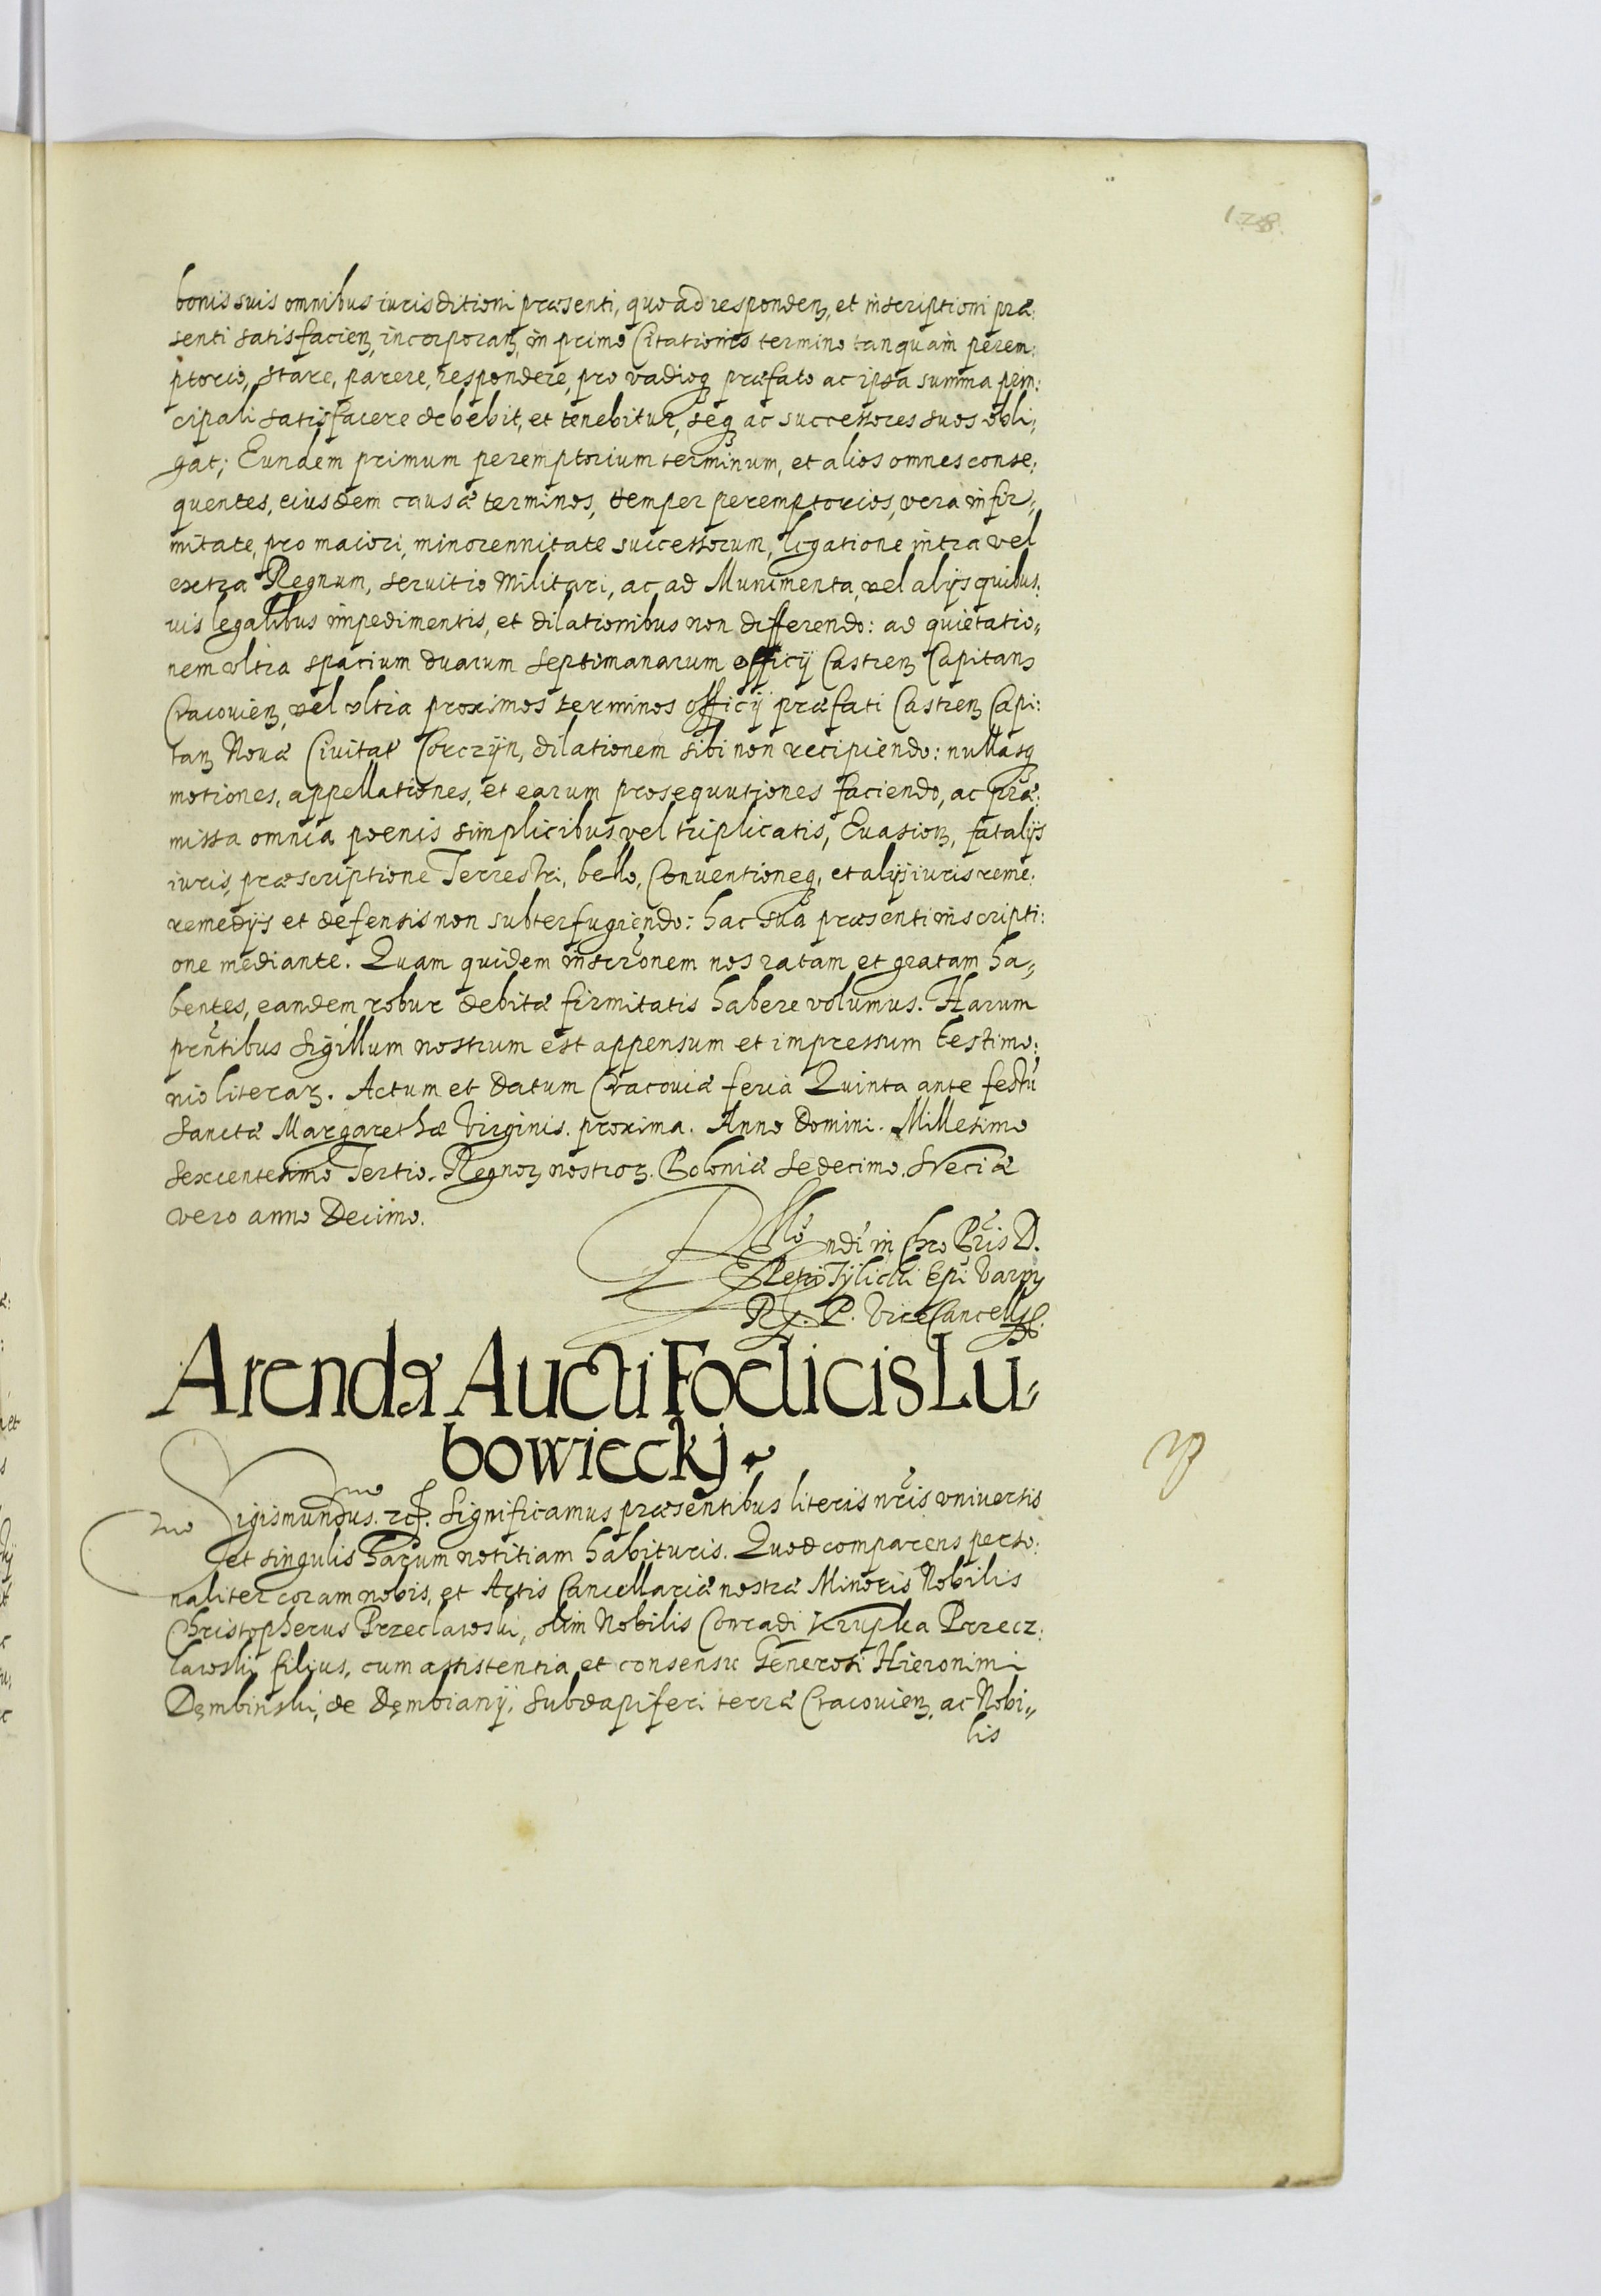 128.
bonis suis omnibus iurisditioni præsenti, quo ad responden, et inscriptioni præ:
senti satisfacien, incorporan, in primo Citationis termino tanquam perem:
ptorio, stare, parere, respondere, pro vadioq præfato ac ipsa summa prin:
cipali satisfacere debebit, et tenebitur, seq ac successores suos obli:
gat; Eundem primum peremptorium terminum, et alios omnes conse:
quentes, eiusdem causæ terminos, semper peremptorios, vera infir:
mitate, pro maiori, minorennitate successorum, legatione intra vel
extra Regnum, servitio Militari, ac ad Munimenta, vel alijs quibus:
vis legalibus impedimentis, et dilationibus non differendo: ad quietatio:
nem vltra spatium duarum septimanarum officij Castren Capitan
Cracovien, vel vltra proximos terminos officij præfati Castren Capi:
tan Novæ Civitat Corczijn, dilationem sibi non recipiendo: nullasq
motiones, appellationes, et earum prosequutiones faciendo, ac præ:
missa omnia poenis simplicibus vel triplicatis, Evasion, fatalijs
iuris, præscriptione Terrestri, bello, Conventioneq, et alijs iuris reme:
remedijs et defensis non subterfugiendo: hac sua præsenti inscripti:
one mediante. Quam quidem inscrõnem nos ratam et gratam ha:
bentes, eandem robur debitæ firmitatis habere volumus. Harum
prñtibus Sigillum nostrum est appensum et impressum testimo:
nio literar. Actum et Datum Cracoviæ feria Quinta ante festũ
Sanctæ Margarethæ Virginis. proxima. Anno Domini. Millesimo
Sexcentesimo Tertio. Regnor nostror. Poloniæ Sedecimo. Sveciæ
vero anno Decimo.
Rllo ndi in Chro Pris D.
Petri Tijlicki Epi Varm
R. P. Vice Cancellj
Arendæ Aucti Foelicis Lu:
bowieckj.
Sigismundus. rcf. Significamus præsentibus literis nris vniversis
et singulis harum notitiam habituris. Quod comparens perso:
naliter coram nobis, et Actis Cancellariæ nostræ Minoris Nobilis
Christopherus Przeclawski, olim Nobilis Conradi Krupka Przecz:
lawskij filius, cum assistentia et consensu Generosi Hieronimi
Dęmbinski, de Dęmbianij, Subdapiferi terræ Cracovien. ac Nobi:
lis